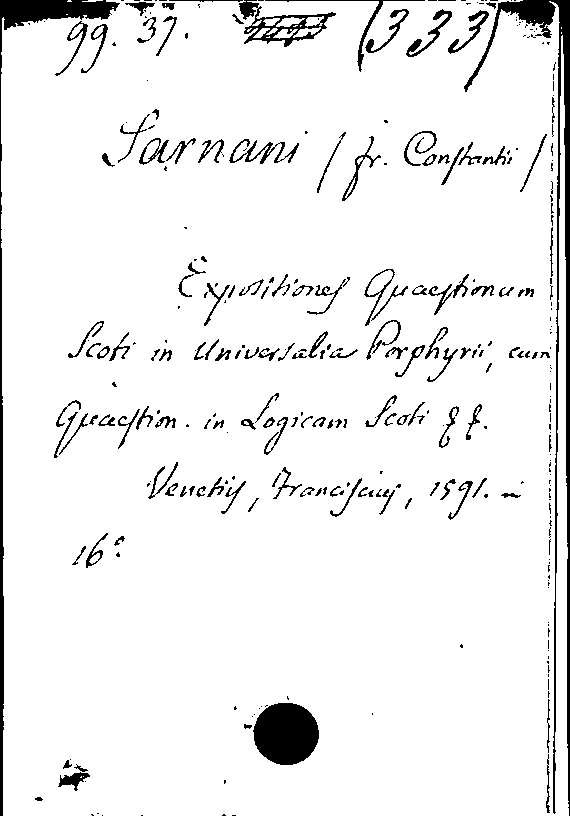 99. 37. (333)
Sarnani / fr. Constantii /
Expositiones Quaestionum
Scoti in Universalia Porphyrii, cum
Quaestion. in Logicam Scoti
Venetiis, Franciscius, 1591. in
16°